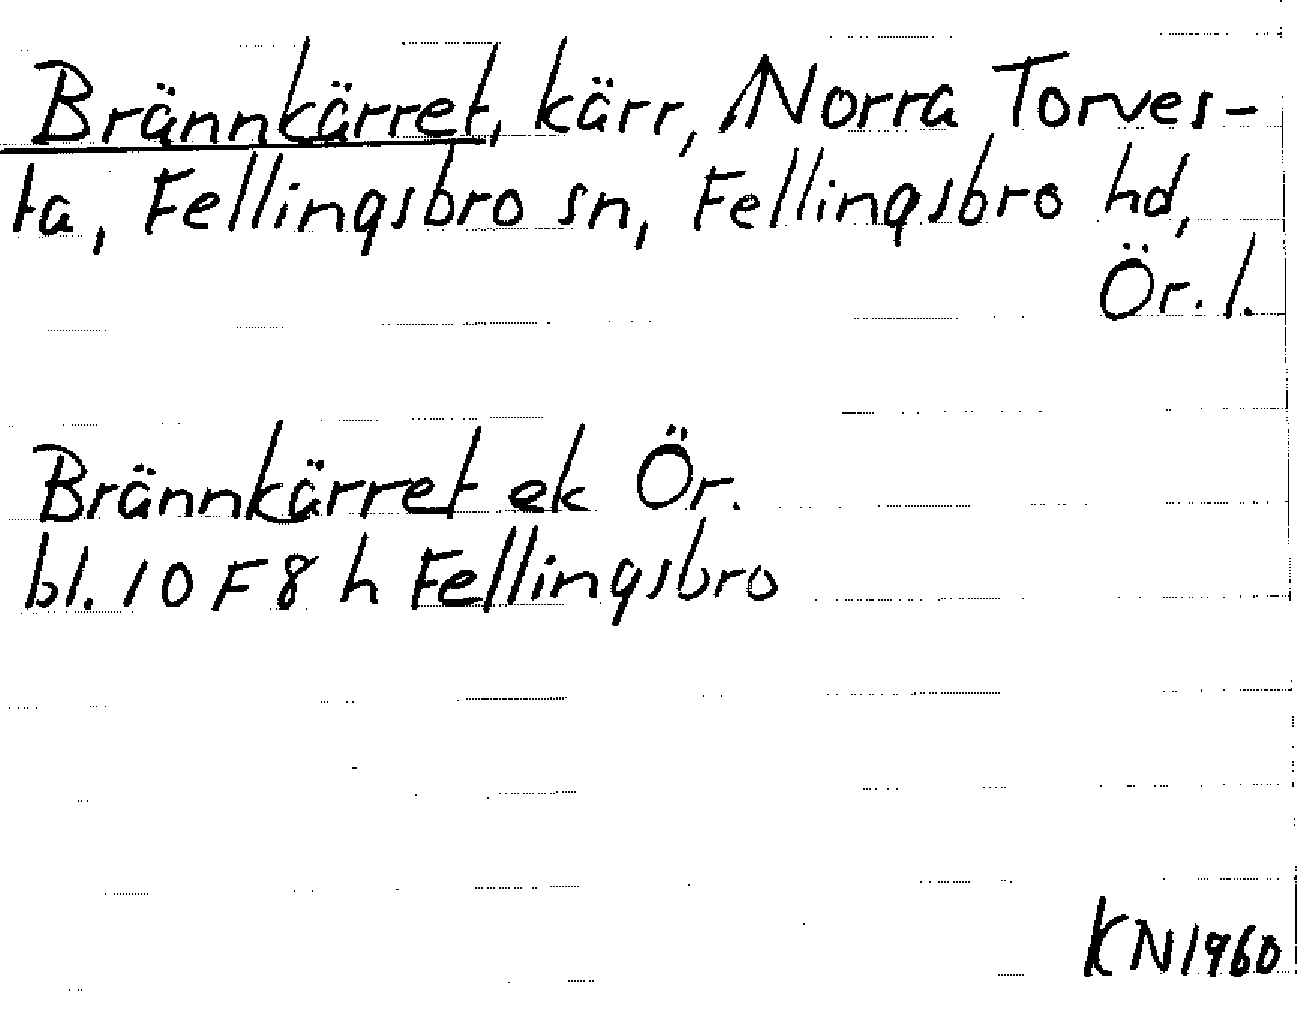 Brännkärret, kärr, Norra Torves-
ta, Fellingsbro sn, Fellingsbro hd,
Ör. l.
Brännkärret ek Ör.
bl. 10 F 8 h Fellingsbro
KN 1960